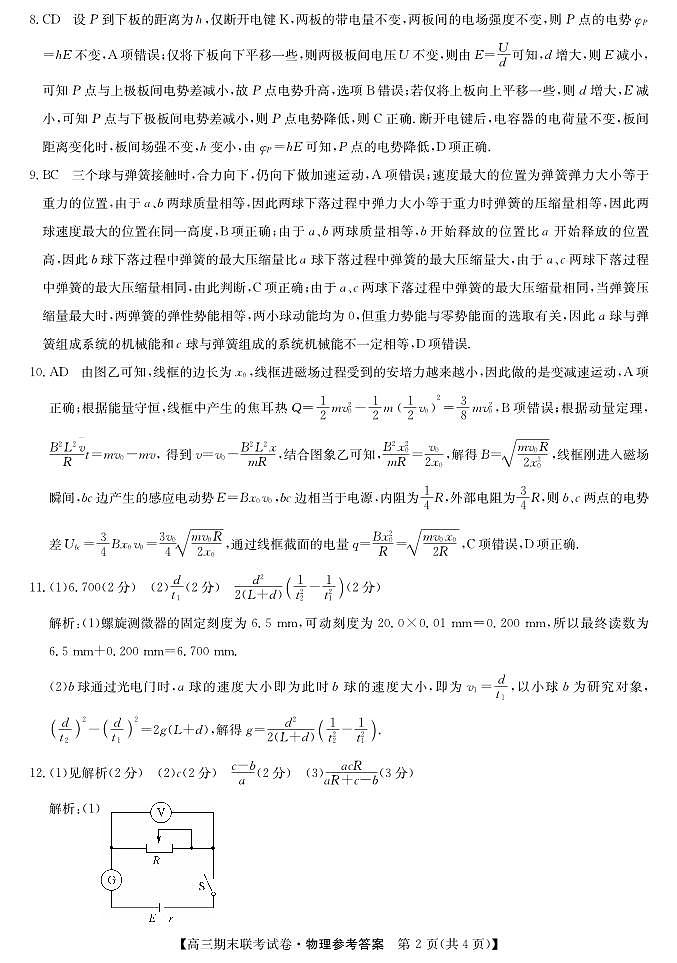 8. CD 设 P 到下板的距离为 h,仅断开电键 K,两板的带电量不变,两板间的电场强度不变,则 P 点的电势 φP
=hE 不变,A 项错误;仅将下板向下平移一些,则两极板间电压 U 不变,则由 E=U/d 可知,d 增大,则 E 减小,
可知 P 点与上极板间电势差减小,故 P 点电势升高,选项 B 错误;若仅将上板向上平移一些,则 d 增大,E 减
小,可知 P 点与下极板间电势差减小,则 P 点电势降低,则 C 正确. 断开电键后,电容器的电荷量不变,板间
距离变化时,板间场强不变,h 变小,由 φP=hE 可知,P 点的电势降低,D 项正确.
9. BC 三个球与弹簧接触时,合力向下,仍向下做加速运动,A 项错误;速度最大的位置为弹簧弹力大小等于
重力的位置,由于 a、b 两球质量相等,因此两球下落过程中弹力大小等于重力时弹簧的压缩量相等,因此两
球速度最大的位置在同一高度,B 项正确;由于 a、b 两球质量相等,b 开始释放的位置比 a 开始释放的位置
高,因此 b 球下落过程中弹簧的最大压缩量比 a 球下落过程中弹簧的最大压缩量大,由于 a、c 两球下落过程
中弹簧的最大压缩量相同,由此判断,C 项正确;由于 a、c 两球下落过程中弹簧的最大压缩量相同,当弹簧压
缩量最大时,两弹簧的弹性势能相等,两小球动能均为 0,但重力势能与零势能面的选取有关,因此 a 球与弹
簧组成系统的机械能和 c 球与弹簧组成的系统机械能不一定相等,D 项错误.
10. AD 由图乙可知,线框的边长为 x₀,线框进磁场过程受到的安培力越来越小,因此做的是变减速运动,A 项
正确;根据能量守恒,线框中产生的焦耳热 Q=1/2 mv₀²−1/2 m(1/2 v₀)²=3/8 mv₀²,B 项错误;根据动量定理,
B²L²v̄/R t=mv₀−mv, 得到 v=v₀−B²L²x/mR,结合图象乙可知,B²x₀²/mR=v₀/2x₀,解得 B=√(mv₀R/2x₀³),线框刚进入磁场
瞬间,bc 边产生的感应电动势 E=Bx₀v₀,bc 边相当于电源,内阻为 1/4 R,外部电阻为 3/4 R,则 b、c 两点的电势
差 Ubc=3/4 Bx₀v₀=3v₀/4 √(mv₀R/2x₀),通过线框截面的电量 q=Bx₀²/R=√(mv₀x₀/2R),C 项错误,D 项正确.
11. (1)6.700(2 分) (2)d/t₁(2 分) d²/2(L+d)(1/t₂²−1/t₁²)(2 分)
解析:(1)螺旋测微器的固定刻度为 6.5 mm,可动刻度为 20.0×0.01 mm=0.200 mm,所以最终读数为
6.5 mm+0.200 mm=6.700 mm.
(2)b 球通过光电门时,a 球的速度大小即为此时 b 球的速度大小,即为 v₁=d/t₁,以小球 b 为研究对象,
(d/t₂)²−(d/t₁)²=2g(L+d),解得 g=d²/2(L+d)(1/t₂²−1/t₁²).
12. (1)见解析(2 分) (2)c(2 分) c−b/a(2 分) (3)acR/aR+c−b(3 分)
解析:(1)
V
R
G
S
E r
【高三期末联考试卷·物理参考答案 第 2 页(共 4 页)】